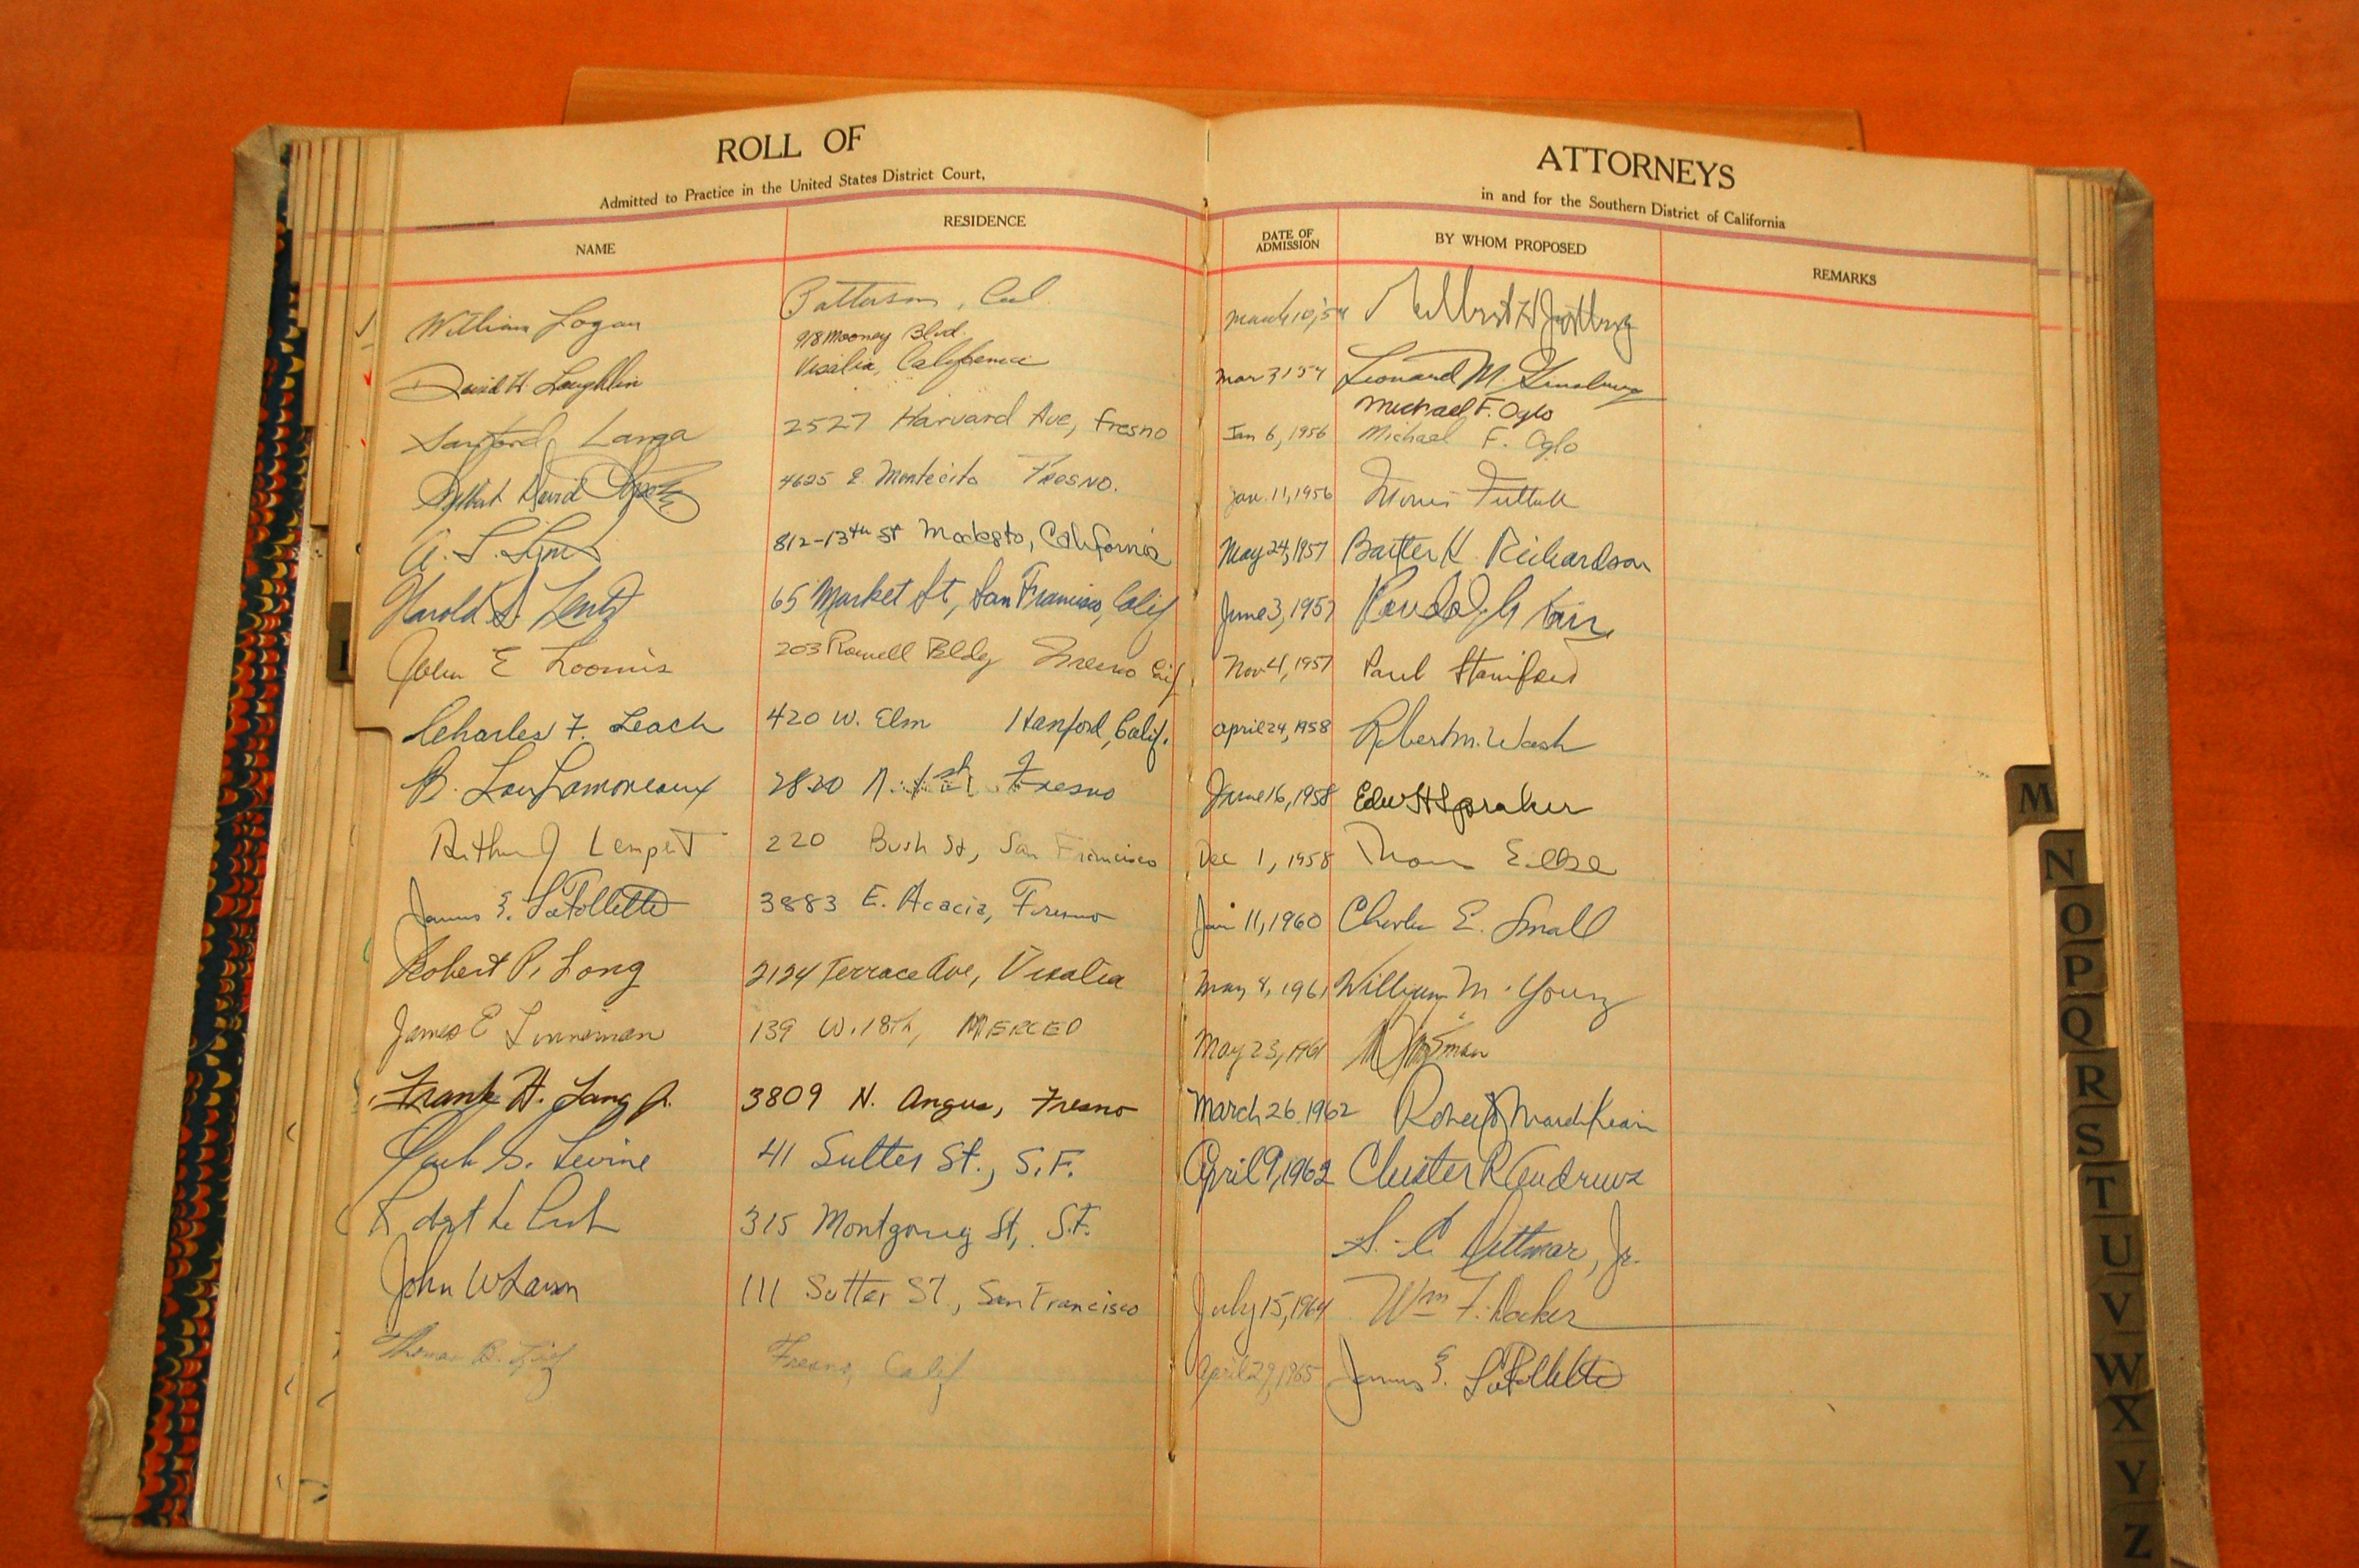 ROLL OF ATTORNEYS
Admitted to Practice in the United States District Court, in and for the Southern District of California
NAME RESIDENCE DATE OF ADMISSION BY WHOM PROPOSED REMARKS
William Logan Patterson, Cal. March 10, '54
918 Mooney Blvd.
David H. Loughlin Visalia, California Mar 31 54 Leonard M. Ginsburg
Michael F. Oglo
Sanford Langa 2527 Harvard Ave, Fresno Jan 6, 1956 Michael F. Oglo
David 4625 E. Montecito Fresno. Jan. 11, 1956
A. L. 812-13th St Modesto, California May 24, 1957 Richardson
Harold S. Lentz 65 Market St, San Francisco, Calif June 3, 1957
John E Loomis 203 Rowell Bldg Fresno Nov 4, 1957 Paul Staniford
Charles F. Leach 420 W. Elm Hanford, Calif. April 24, 1958 Robert M. Wash
B. Lamoreaux 2820 N. 1st Fresno June 16, 1958 Edw H Spraker
Arthur J Lempert 220 Bush St, San Francisco Dec 1, 1958
James E. LaFollette 3883 E. Acacia, Fresno Jan 11, 1960 Charles E. Small
Robert P. Long 2124 Terrace Ave, Visalia May 8, 1961 William M. Young
James E Linneman 139 W. 18th, MERCED May 23, 1961
Frank H. Lang Jr. 3809 N. Angus, Fresno March 26, 1962 Robert Mardikian
Jack S. Levine 41 Sutter St., S.F. April 9, 1962 Chester R Andrews
315 Montgomery St, S.F. Dettmar, Jr.
John W Larson 111 Sutter ST, San Francisco July 15, 1964 Wm F. Docker
Thomas B. Fresno, Calif April 29, 1965 James E. LaFollette
M
N
O
P
Q
R
S
T
U
V
W
X
Y
Z